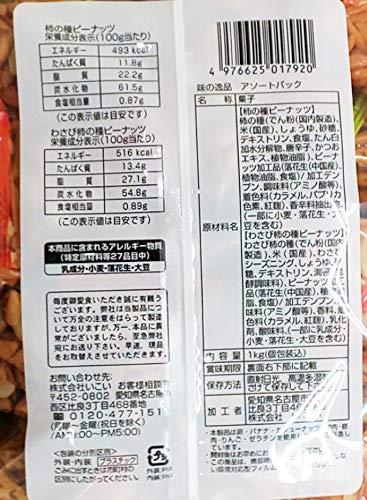 柿の種ピーナッツ
栄養成分表示(100g当たり)
エネルギー 493 kcal
たんぱく質 11.8g
脂質 22.2g
炭水化物 61.5g
食塩相当量 0.87g
(この表示値は目安です)
わさび柿の種ピーナッツ
栄養成分表示(100g当たり)
エネルギー 516 kcal
たんぱく質 13.4g
脂質 27.1g
炭水化物 54.8g
食塩相当量 0.89g
(この表示値は目安です)
本商品に含まれるアレルギー物質
(特定原材料等27品目中)
乳成分・小麦・落花生・大豆
毎度御愛食いただき誠に有難う
ございます。弊社は当製品につい
て万全の注意をはらって製造して
おりますが、万一、本品に異常が
ございましたら、至急弊社宛
にお送り下さい。早速、現品と
お取替えさせていただきます。
お問い合わせ先:
株式会社いこい お客様相談
〒452-0802 愛知県名古屋市
西区比良3丁目468番地
0120-477-151
(月曜~金曜(祝日を除く)
AM9:00~PM5:00)
<包装の分別区別>
外装・内装:プラスチック
ごみに出すときは市町村の
区別にしたがってください。
外装・内装
プラ
4 976625 017920
味の逸品 アソートパック
名称 菓子
原材料名
【柿の種ピーナッツ】
柿の種(でん粉(国内製造)、
米(国産)、しょうゆ、砂糖、
デキストリン、食塩、たん白
加水分解物、唐辛子、かつお
エキス、植物油脂)、ピー
ナッツ加工品(落花生(中国産)、
植物油脂、食塩)/加工デン
プン、調味料(アミノ酸等)、
着色料(カラメル、パプリカ
色素、紅麹)、香辛料抽出物、
(一部に小麦・落花生・大
豆を含む)
【わさび柿の種ピーナッツ】
わさび柿の種(でん粉(国内
製造)、米(国産)、わさび
シーズニング、しょうゆ、
糖、デキストリン、海苔
内容量 1kg(個包装込)
賞味期限 裏面右下部に記載
保存方法 直射日光、高温多湿を
さけて保存して下さい
加工者
愛知県名古屋市
比良3丁目468